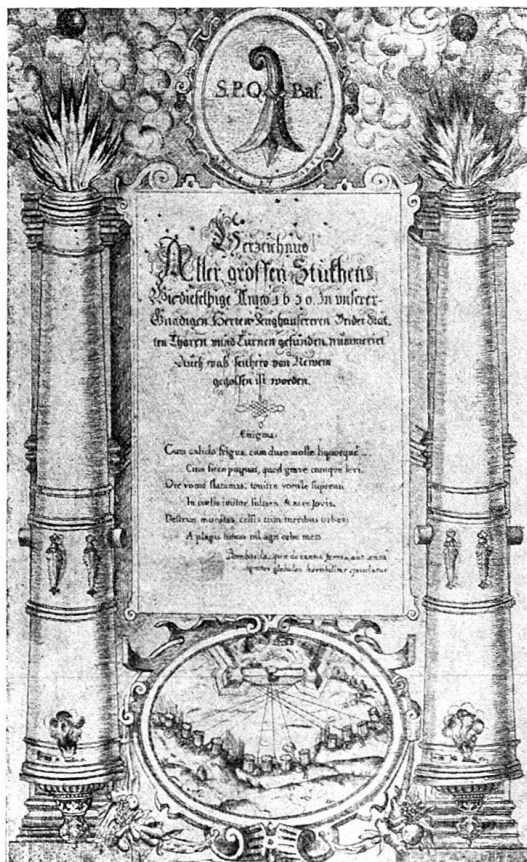 S.P.Q. Bas.
Verzeichnus
Aller grossen Stuckhens,
Wie dieselbige Anno 1630. In unserer
Gnädigen Herren Zeughauseren Beider Stat
ten Thoren unnd Türnen gefunden, nummeriert
Auch waß seithero von Newem
gegossen ist worden.
Enigma.
Cum calido frigus, cum duro molle liquorque
Cum sicco pugnat, quod grave cumque levi.
Ore vomo flammas, tonitru
In coelis imitor fulmen, & acre Jovis.
Destruo munitas, celsis cum turribus urbes;
A plagis nil agit orbe meis
Bombarda, quae de canna ferrea, aut aenea
ignitos globulos horribiliter ejaculatur